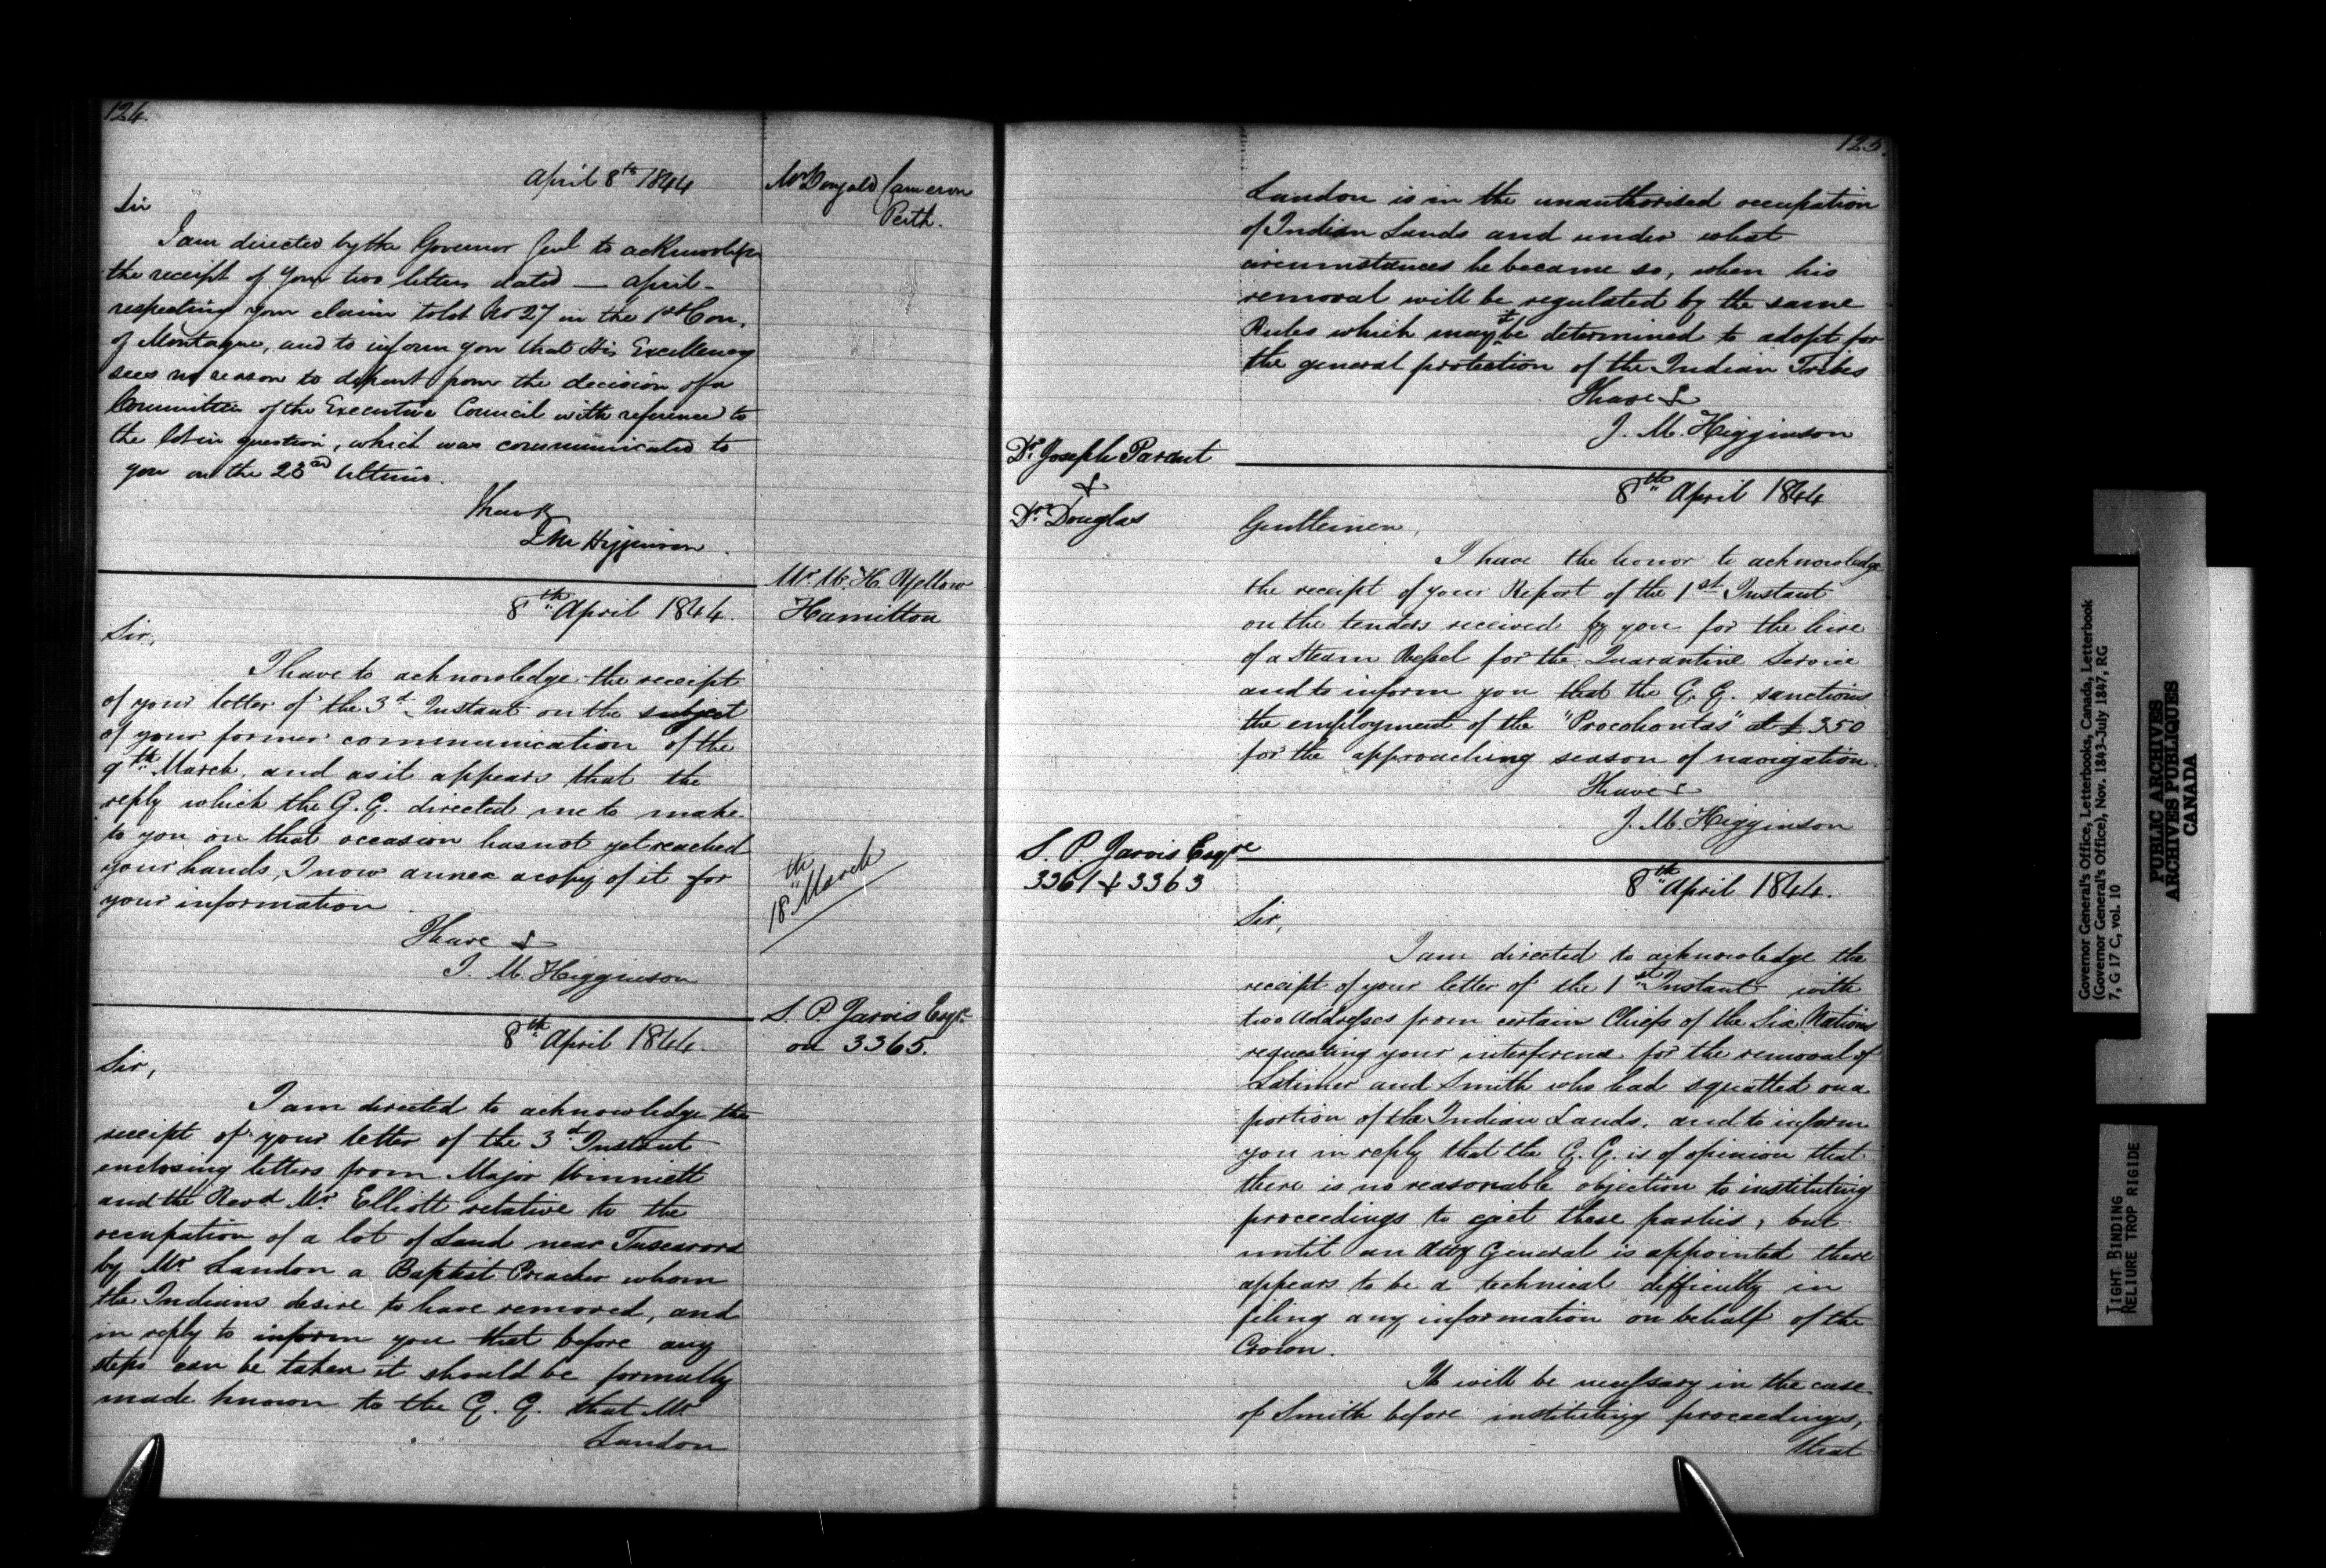 124.
April 8th 1844
Mr Dougald Cameron
Perth.
Sir
I am directed by the Governor Genl to acknowledge
the receipt of your two letters dated — April -
respecting your claim to lot No 27 in the 1st Con.
of Montague, and to inform you that His Excellency
sees no reason to depart from the decision of a
Committee of the Executive Council with reference to
the lot in question, which was communicated to
you on the 23rd Ultimo.
I have &
J M Higginson.
Mr. W. H. Mellow
Hamilton
8th April 1844.
Sir,
I have to acknowledge the receipt
of your letter of the 3d Instant on the subject
of your former communication of the
9th March, and as it appears that the
reply which the G. G. directed me to make
to you on that occasion has not yet reached
your hands, I now annex a copy of it for
your information
18th March
I have &
J. M. Higginson
S. P. Jarvis Esqre
on 3365.
8th April 1844.
Sir,
I am directed to acknowledge the
receipt of your letter of the 3d Instant
enclosing letters from Major Winniett
and the Revd Mr Elliott relative to the
occupation of a lot of Land near Tuscarora
by Mr Landon a Baptist Preacher whom
the Indians desire to have removed, and
in reply to inform you that before any
steps can be taken it should be formally
made known to the G. G. that Mr
Landon
125.
Landon is in the unauthorised occupation
of Indian Lands and under what
circumstances he became so, when his
removal will be regulated by the same
Rules which may it be determined to adopt for
the general protection of the Indian Tribes
I have &
J. M. Higginson
Dr. Joseph Parant
&
Dr. Douglas
8th April 1844
Gentlemen,
I have the honor to acknowledge
the receipt of your Report of the 1st Instant
on the tenders received by you for the hire
of a Steam Vessel for the Quarantine Service
and to inform you that the G. G. sanctions
the employment of the "Procohontas" at £350
for the approaching season of navigation.
I have &
J. M. Higginson
S. P. Jarvis Esqre
3361 & 3363
8th April 1844.
Sir,
I am directed to acknowledge the
receipt of your letter of the 1st Instant with
two Addresses from certain Chiefs of the Six Nations
requesting your interference for the removal of
Latimer and Smith who had squatted on a
portion of the Indian Lands, and to inform
you in reply that the G. G. is of opinion that
there is no reasonable objection to instituting
proceedings to eject these parties, but
until an Atty General is appointed there
appears to be a technical difficulty in
filing any information on behalf of the
Crown.
It will be necessary in the case
of Smith before instituting proceedings,
that
Governor General's Office, Letterbooks, Canada, Letterbook
(Governor General's Office), Nov. 1843-July 1847, RG
7, G 17 C, vol. 10
PUBLIC ARCHIVES
ARCHIVES PUBLIQUES
CANADA
TIGHT BINDING
RELIURE TROP RIGIDE